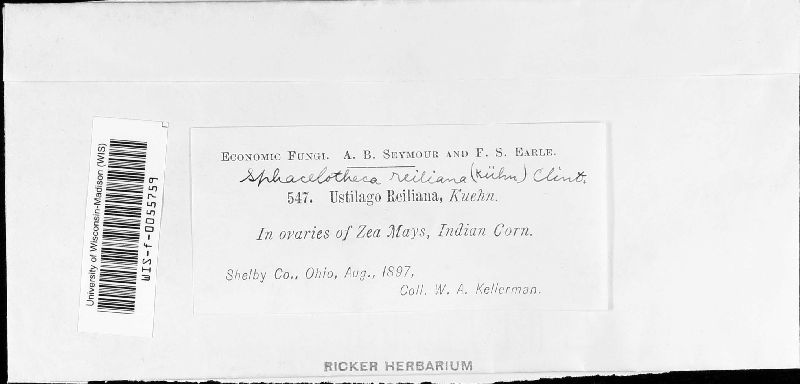 University of Wisconsin-Madison (WIS)
WIS-f-0055759
ECONOMIC FUNGI. A. B. SEYMOUR AND F. S. EARLE.
Sphacelotheca reiliana (Kühn) Clint.
547. Ustilago Reiliana, Kuehn.
In ovaries of Zea Mays, Indian Corn.
Shelby Co., Ohio, Aug., 1897,
Coll. W. A. Kellerman.
RICKER HERBARIUM